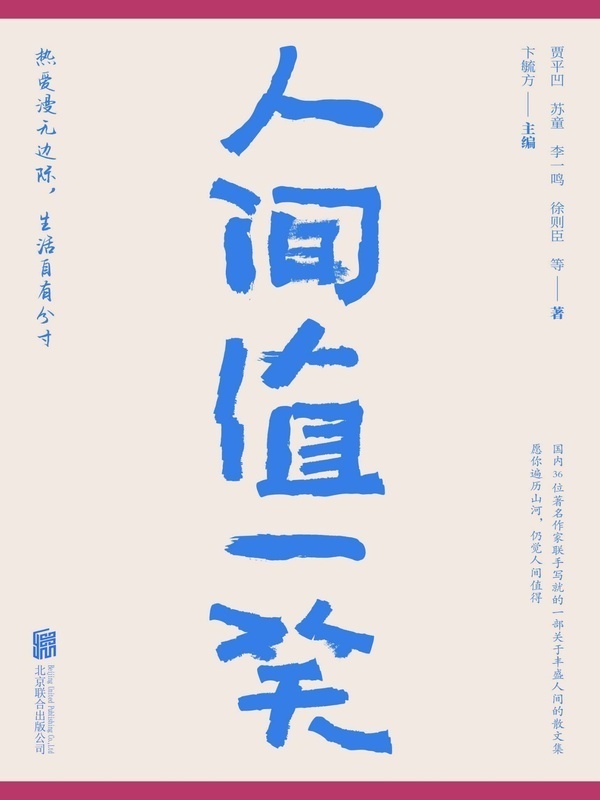 贾平凹 苏童 李一鸣 徐则臣 等——著
卞毓方——主编
人间值一笑
热爱漫无边际，生活自有分寸
国内36位著名作家联手写就的一部关于丰盛人间的散文集
愿你遍历山河，仍觉人间值得
Beijing United Publishing Co.,Ltd.
北京联合出版公司